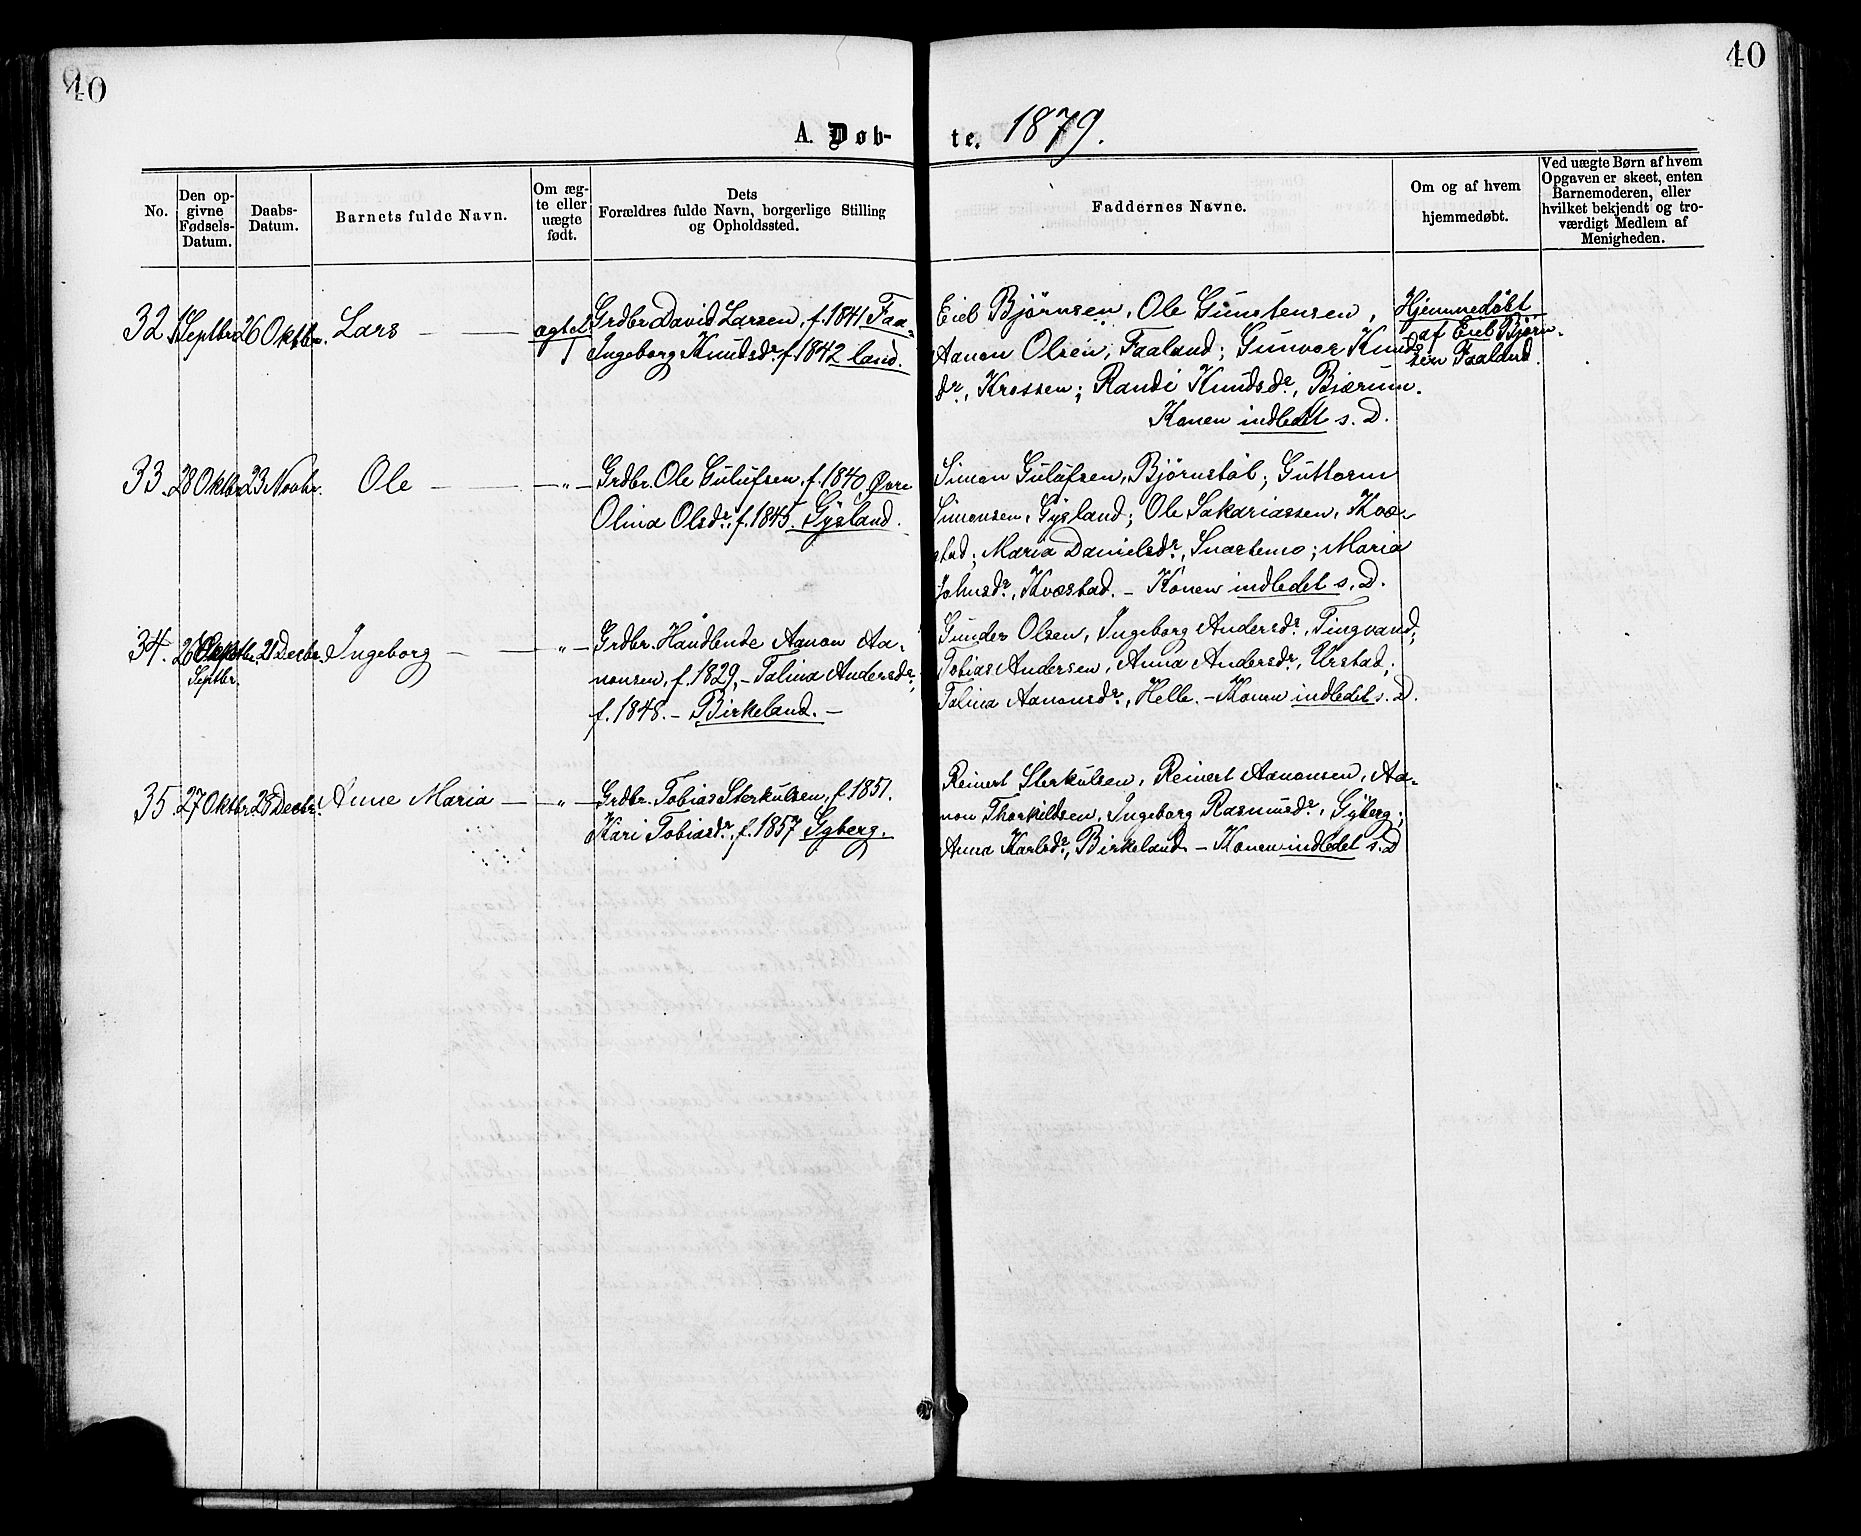 40
40
A. Døb-
te. 1879.
No.
Den op-
givne
Fødsels-
Datum.
Daabs-
Datum.
Barnets fulde Navn.
Om æg-
te eller
uægte
født.
Dets
Forældres fulde Navn, borgerlige Stilling
og Opholdssted.
Faddernes Navne.
Om og af hvem
hjemmedøbt.
Ved uægte Børn af hvem
Opgaven er skeet, enten
Barnemoderen, eller
hvilket bekjendt og tro-
værdigt Medlem af
Menigheden.
32. 1 Septbr 26 Oktbr. Lars — — ægtef
Grdbr David Larsen, f. 1841 Faa-
Ingeborg Knudsdr f. 1842 land.
Eieb Bjørnsen, Ole Gunstensen,
Aanon Olsen, Faaland; Gunvor Knuds
dr, Krossen; Randi Knudsdr, Bjærum.
Konen indledet s. D.
Hjemmedøbt
af Eieb Bjørn-
sen Faaland.
33. 28 Oktbr 23 Novbr. Ole — — — „ —
Grdbr. Ole Gulufsen, f. 1840, Øvre
Olina Olsdr, f. 1845. Gysland.
Simon Gulufsen, Bjørnstøl; Guttorm
Simonsen, Gysland; Ole Sakariassen, Kvæ-
stad; Maria Danielsdr, Snartemo; Maria
Johnsdr, Kvæstad. — Konen indledet s. D.
34. 26 Septbr. 21 Decbr. Ingeborg — — „ —
Septbr.
Grdbr. Handlende Aanon Aa-
nonsen, f. 1829, — Talina Andersdr,
f. 1848. — Birkeland. —
Gunder Olsen, Ingeborg Andersdr, Tingvand;
Tobias Andersen, Anna Andersdr, Urstad;
Talina Aanonsdr, Helle. — Konen indledet s. D.
35. 27 Oktbr. 28 Decbr. Anne Maria — — „ —
Grdbr. Tobias Sterkulsen, f. 1851.
Kari Tobiasdr, f. 1857 Gyberg.
Reinert Sterkulsen, Reinert Aanonsen, Aa-
non Thorkildsen, Ingeborg Rasmusdr, Gyberg;
Anna Karlsdr, Birkeland — Konen indledet s. D